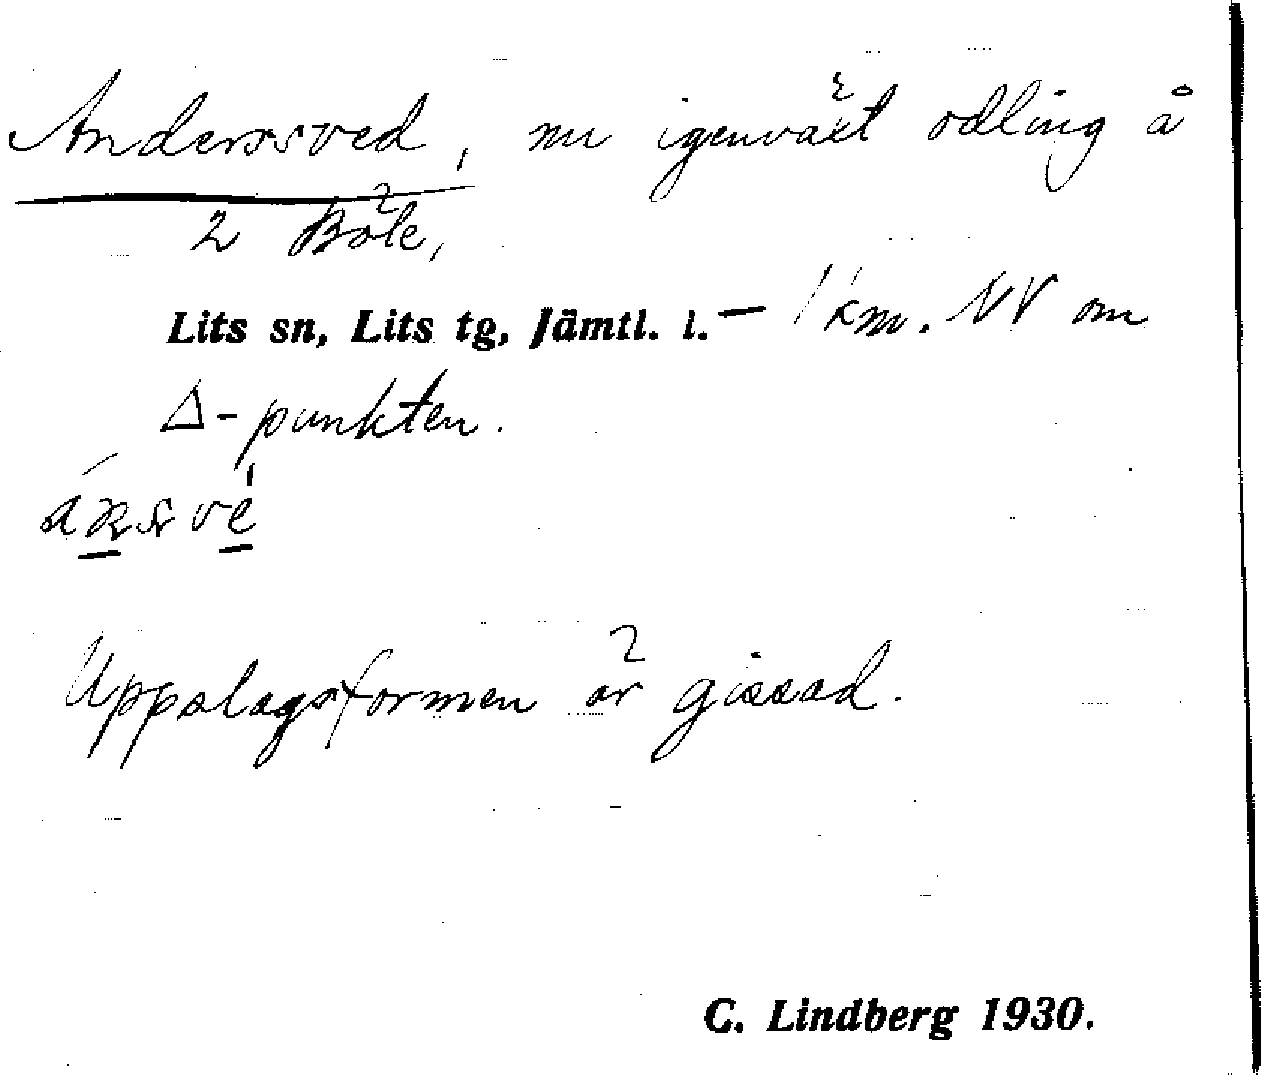 Anderssved, nu igenväxt odling å
2 Böle,
Lits sn, Lits tg, Jämtl. l. – 1 km. NV om
Δ-punkten.
Uppslagsformen är gissad.
C. Lindberg 1930.